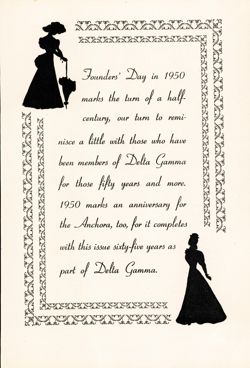 Founders' Day in 1950
marks the turn of a half-
century, our turn to remi-
nisce a little with those who have
been members of Delta Gamma
for those fifty years and more.
1950 marks an anniversary for
the Anchora, too, for it completes
with this issue sixty-five years as
part of Delta Gamma.